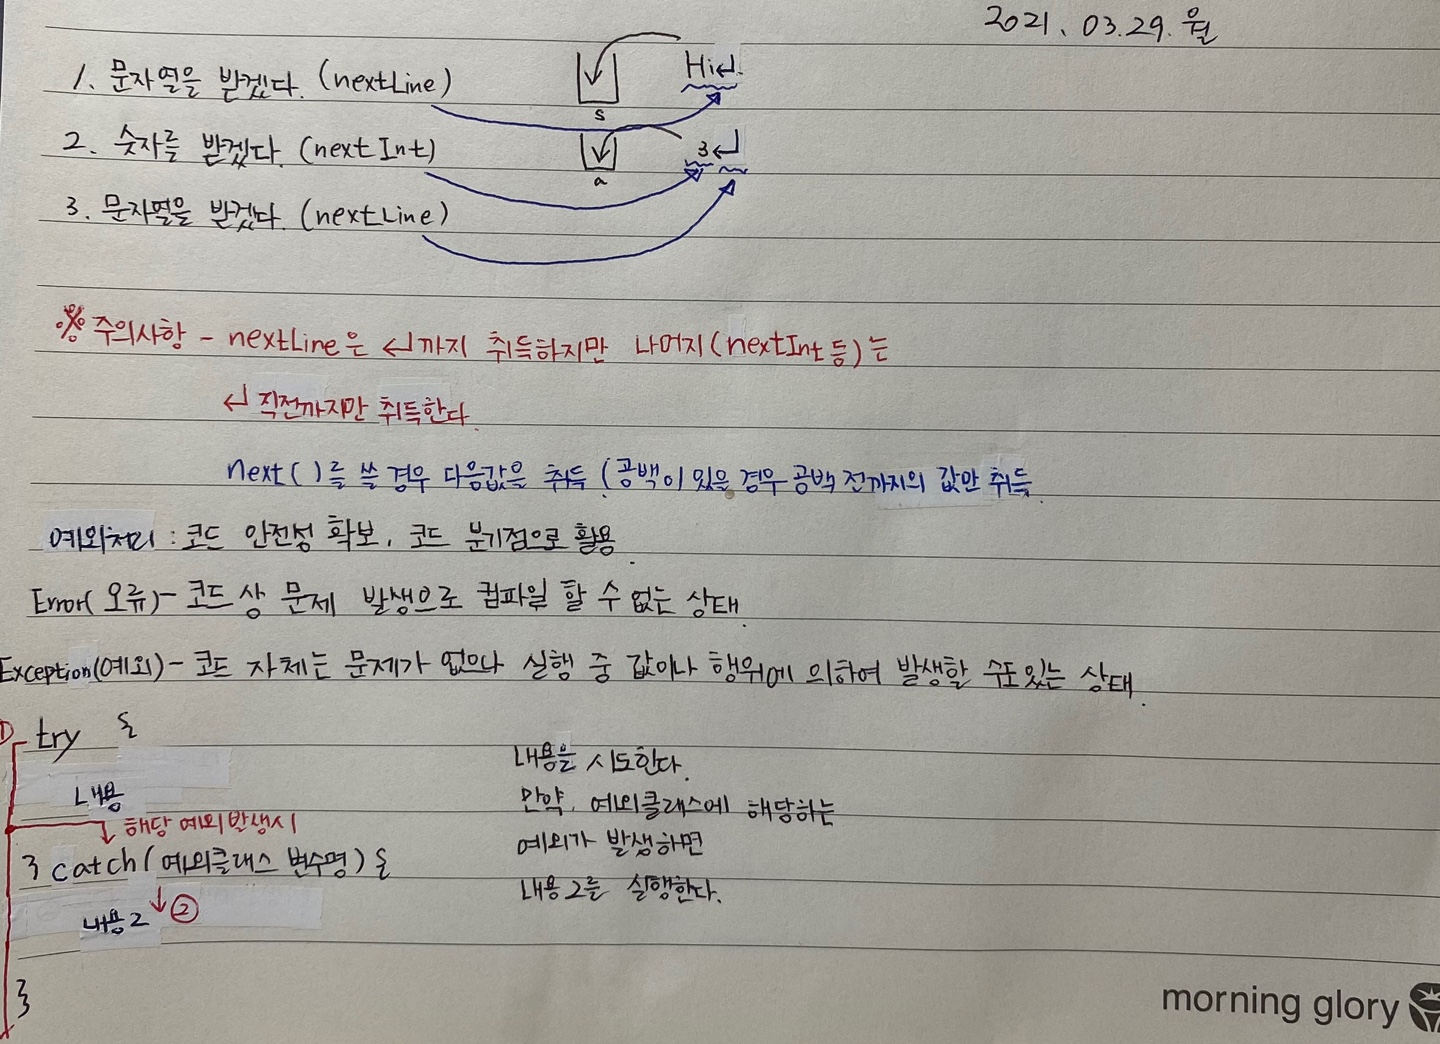 2021. 03. 29. 월
1. 문자열을 받겠다. (nextLine)
Hi↵
s
2. 숫자를 받겠다. (nextInt)
3↵
a
3. 문자열을 받겠다. (nextLine)
※ 주의사항 - nextLine은 ↵까지 취득하지만 나머지(nextInt 등)는
↵ 직전까지만 취득한다.
next( )를 쓸 경우 다음값을 취득 (공백이 있을 경우 공백 전까지의 값만 취득
예외처리 : 코드 안전성 확보, 코드 분기점으로 활용
Error(오류) - 코드 상 문제 발생으로 컴파일 할 수 없는 상태.
Exception(예외) - 코드 자체는 문제가 없으나 실행 중 값이나 행위에 의하여 발생할 수도 있는 상태.
① try {
내용
해당 예외 발생시
} catch(예외클래스 변수명) {
내용2 ②
}
내용을 시도한다.
만약, 예외클래스에 해당하는
예외가 발생하면
내용2를 실행한다.
morning glory